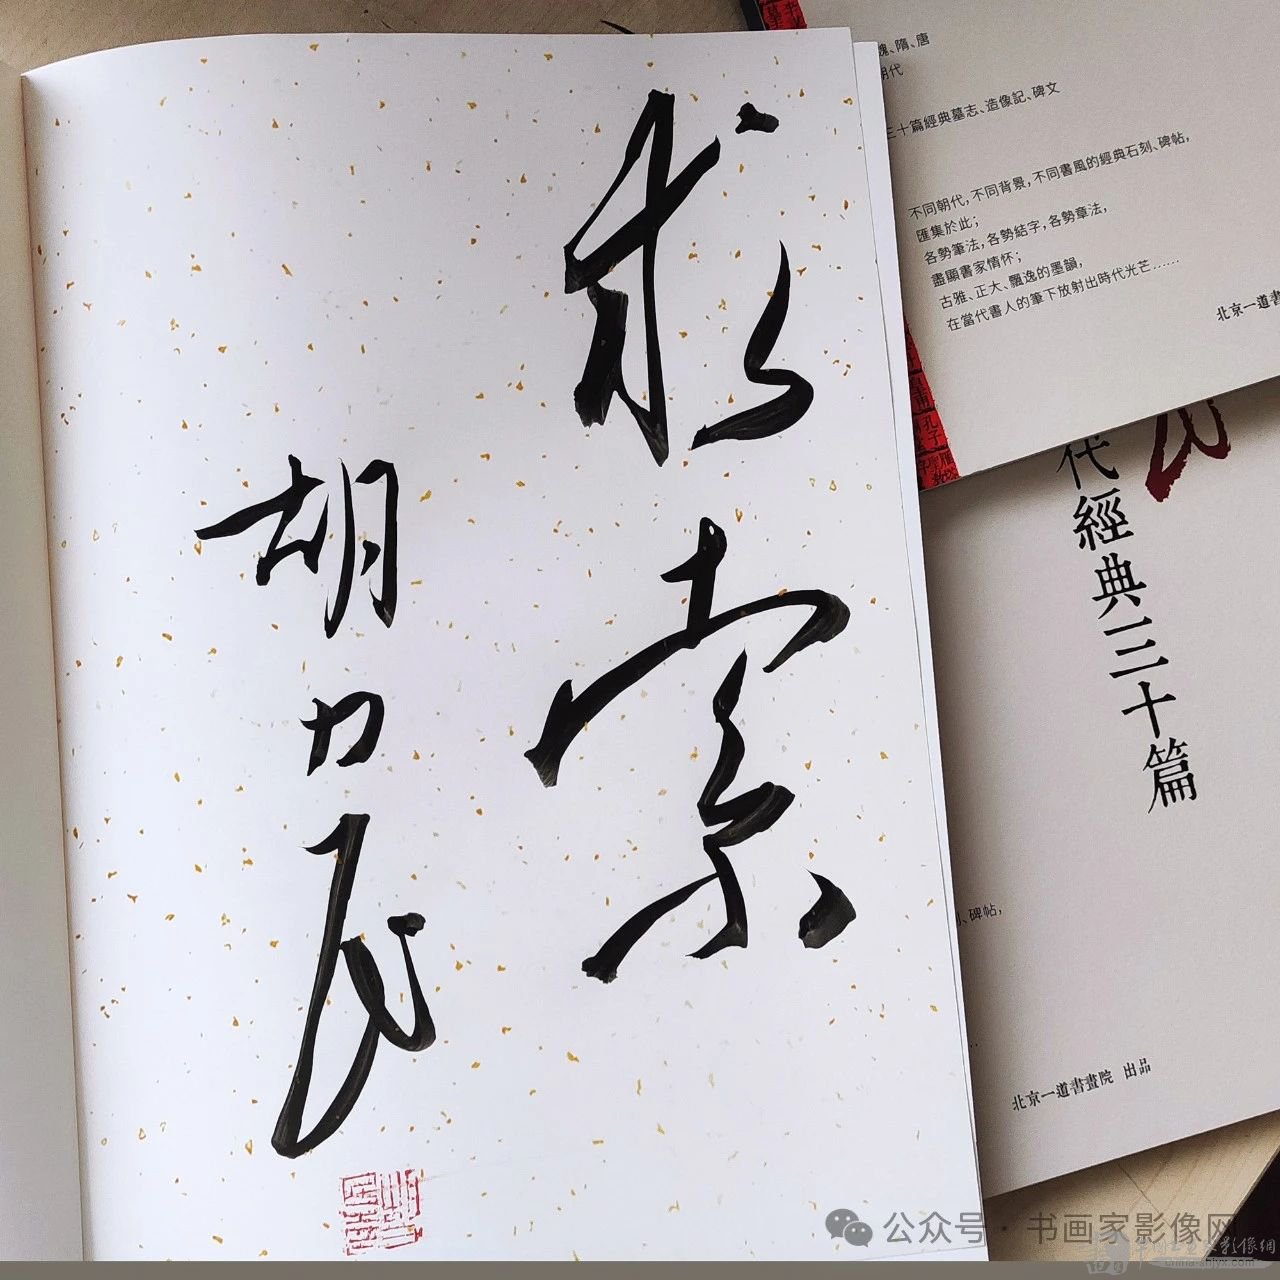 求索
胡力民
魏、隋、唐
朝代
三十篇經典墓志、造像記、碑文
不同朝代，不同背景，不同書風的經典石刻、碑帖，
匯集於此；
各勢筆法，各勢結字，各勢章法，
盡顯書家情怀；
古雅、正大、飄逸的墨韻，
在當代書人的筆下放射出時代光芒……
北京一道書
代經典三十篇
碑帖，
北京一道書畫院 出品
公众号·书画家影像网